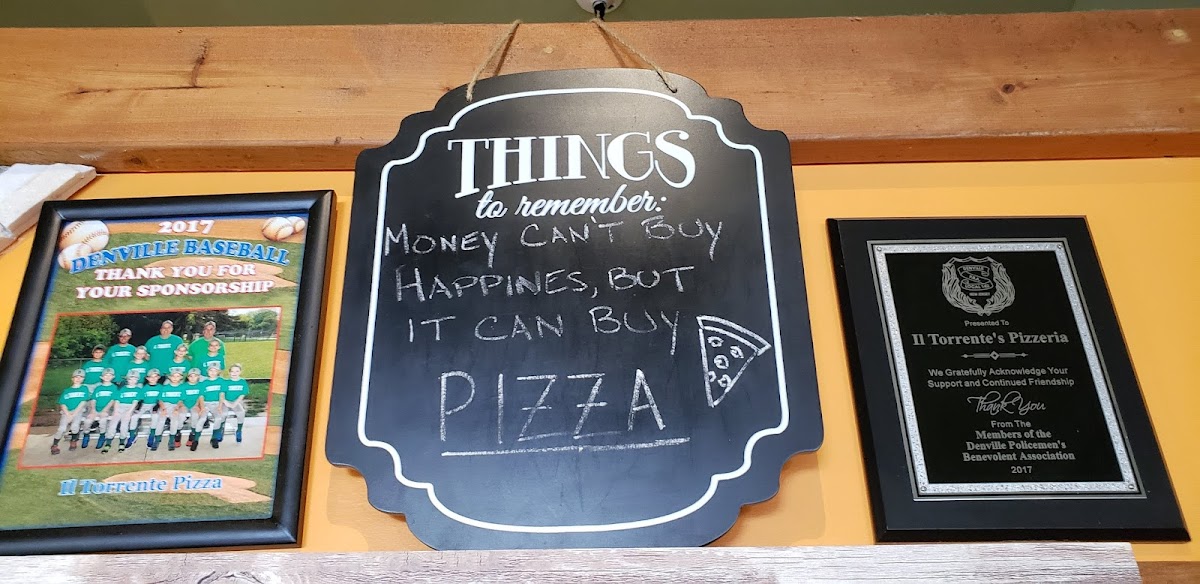 2017
DENVILLE BASEBALL
THANK YOU FOR
YOUR SPONSORSHIP
Il Torrente Pizza
THINGS
to remember:
MONEY CAN'T BUY
HAPPINES, BUT
IT CAN BUY
PIZZA
DENVILLE
Presented To
Il Torrente's Pizzeria
We Gratefully Acknowledge Your
Support and Continued Friendship
Thank You
From The
Members of the
Denville Policemen's
Benevolent Association
2017